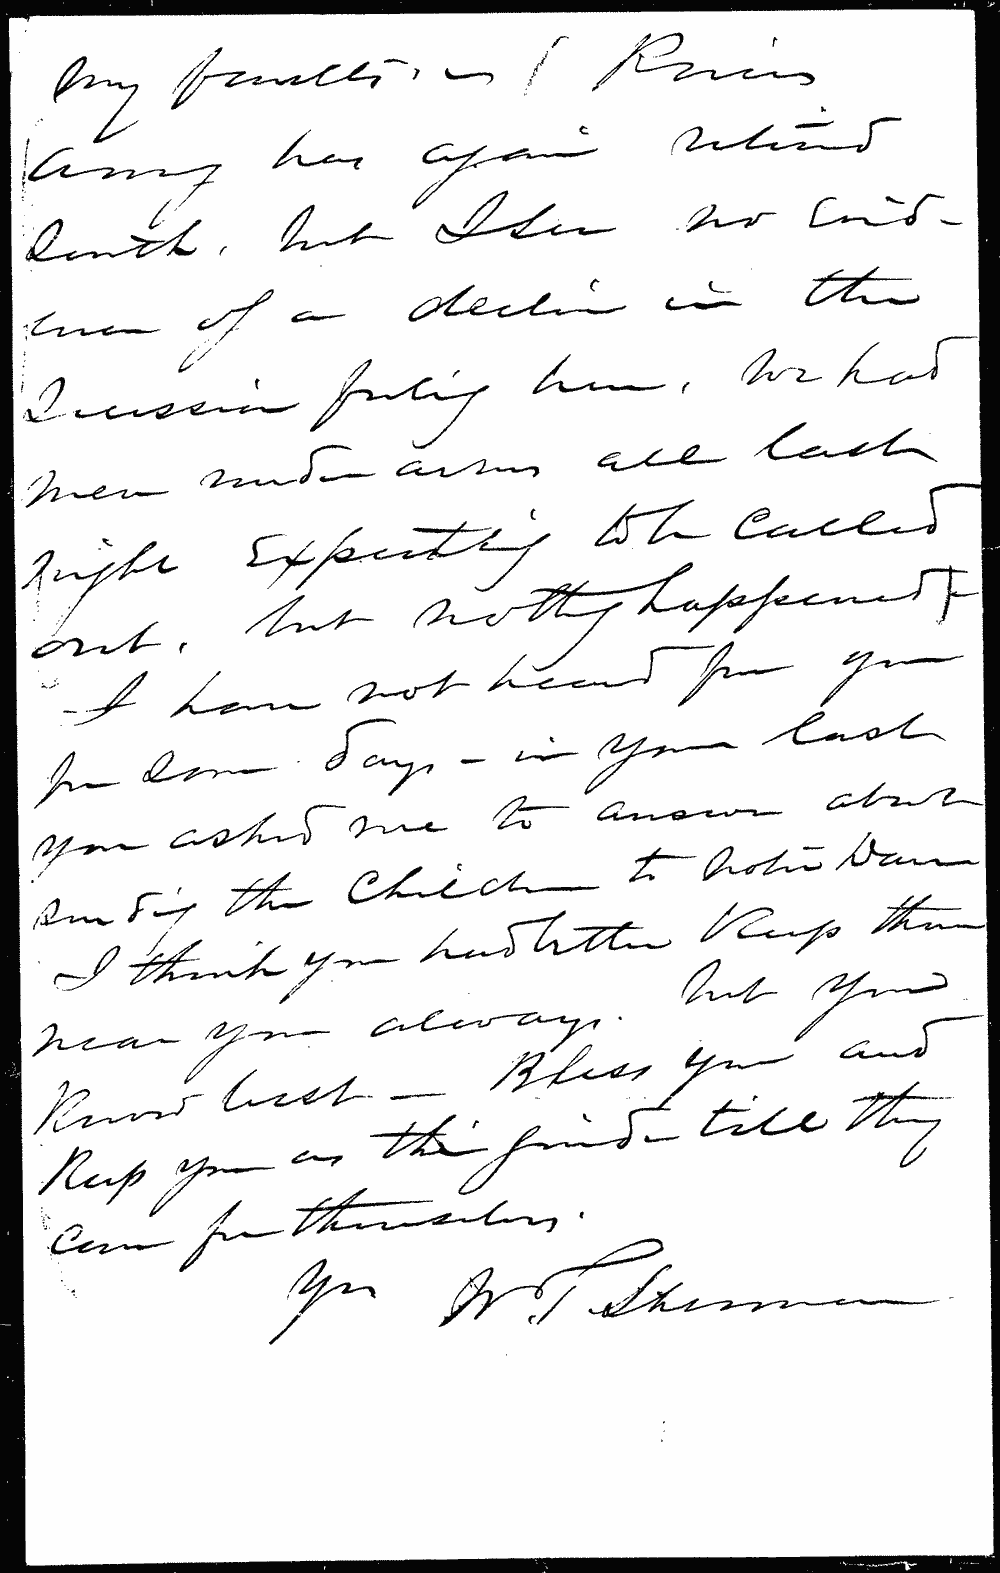 my faculties. Price's
army has again retired
South, but I see no evid-
ence of a decline in the
Secession feeling here. We had
men under arms all last
night expecting to be called
out, but nothing happened
- I have not heard from you
for some days - in your last
you asked me to answer about
sending the Children to Notre Dame
I think you had better keep them
near you always. but you
Know best - Bless you and
Keep you as their guide till they
can for themselves.
Yrs W. T. Sherman